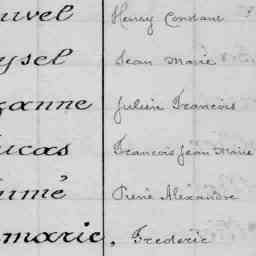 uvel Henry Constant
ysel Jean Marie
zanne Julien François
ucas François Jean Marie
umé Pierre Alexandre
marie. Frédéric